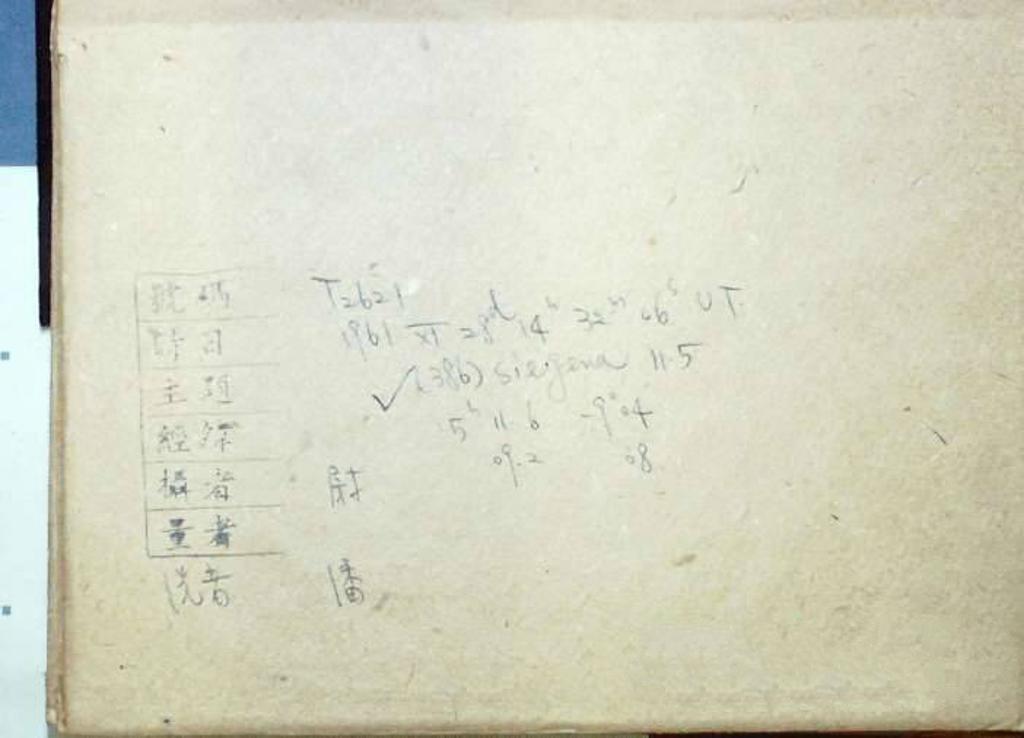 號碼 T2621
時日 1961 XI 28d 14h 32m 06s UT
主題 ✓(386) siegena 11.5
經緯 5h 11.6 -9°04
09.2 08
攝者 尉
量者
洗者 潘